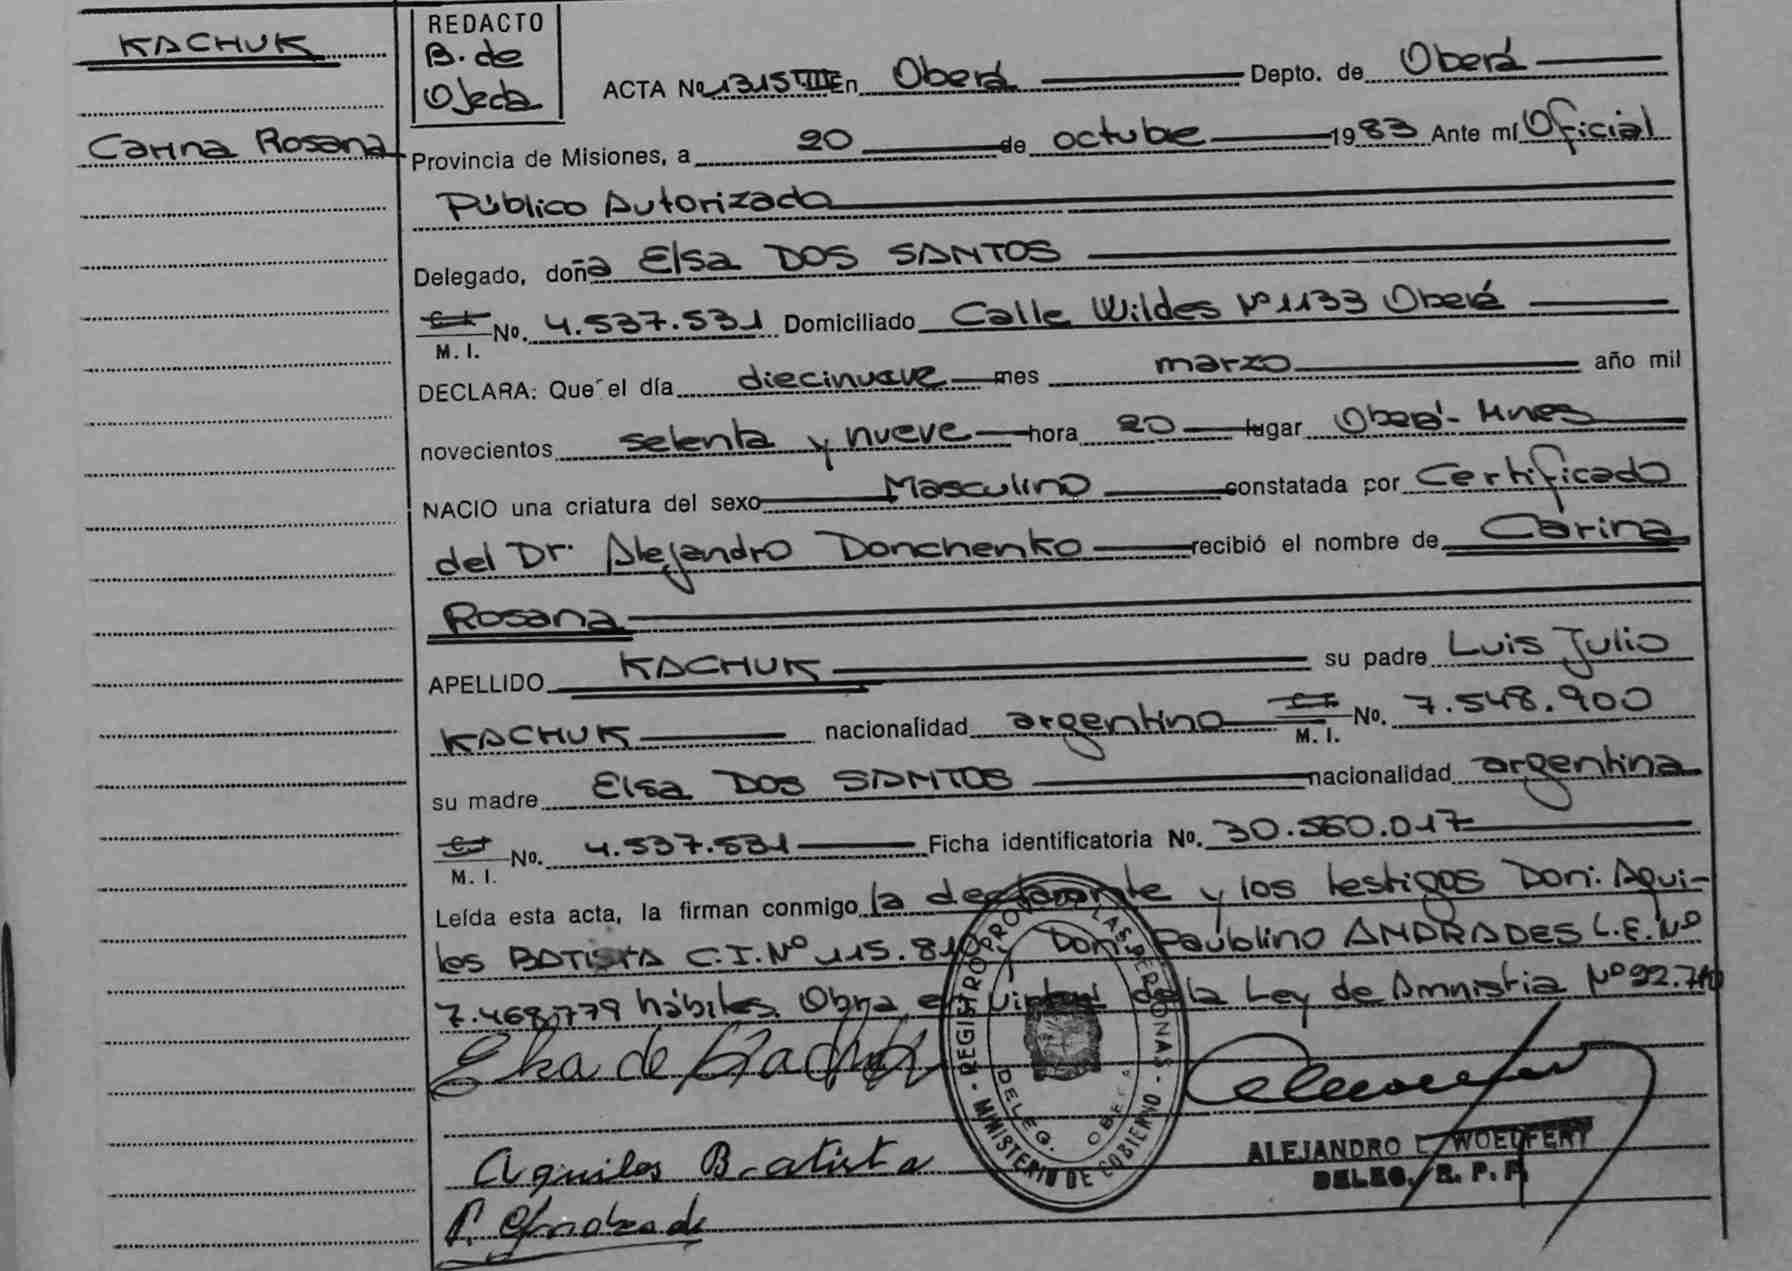 KACHUK
Carina Rosana
REDACTO
B. de
Ojeda
ACTA No 1315 VIII En Oberá Depto. de Oberá
Provincia de Misiones, a 20 de octubre 1983 Ante mí Oficial
Público Autorizado
Delegado, doña Elsa DOS SANTOS
C.I. M. I. No. 4.537.531 Domiciliado Calle Wildes Nº 1133 Oberá
DECLARA: Que el día diecinueve mes marzo año mil
novecientos setenta y nueve hora 20 lugar Oberá - Mnes
NACIO una criatura del sexo Masculino constatada por Certificado
del Dr. Alejandro Donchenko recibió el nombre de Carina
Rosana
APELLIDO KACHUK su padre Luis Julio
KACHUK nacionalidad argentino C.I. M. I. No. 7.548.900
su madre Elsa DOS SANTOS nacionalidad argentina
C.I. M. I. No. 4.537.531 Ficha identificatoria No. 30.560.017
Leída esta acta, la firman conmigo la declarante y los testigos Don: Aqui-
les BATISTA C.I. Nº 115.810 Don: Paublino ANDRADES L.E. Nº
7.468.779 hábiles. Obra en virtud de la Ley de Amnistia Nº 22.710
Elsa de Kachuk
REGISTRO PROV. DE LAS PERSONAS - MINISTERIO DE GOBIERNO -
DELEG. OBERA
Aquiles Batista
ALEJANDRO L. WOELFERT
DELEG. R. P. P.
P. Andrade